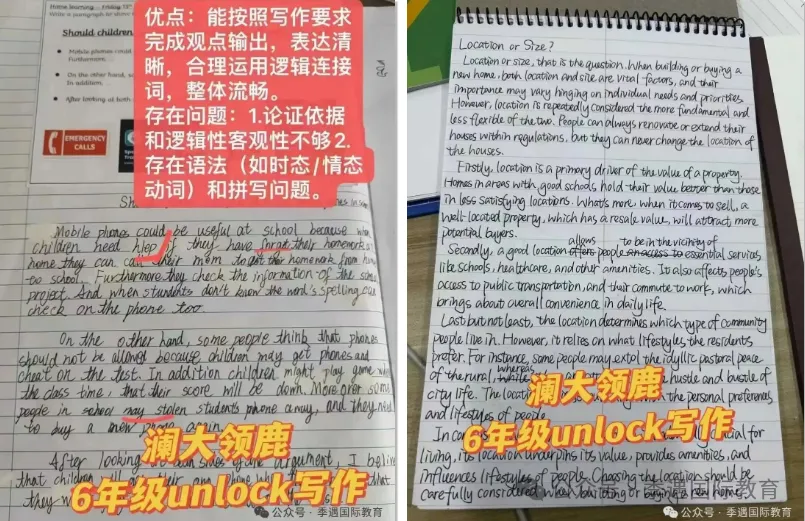 Home learning - Friday 13th
Write a paragraph to show
Should children
Mobile phones could
Furthermore...
On the other hand, so
In addition...
After looking at both
EMERGENCY
CALLS
优点：能按照写作要求
完成观点输出，表达清
晰，合理运用逻辑连接
词，整体流畅。
存在问题：1.论证依据
和逻辑性客观性不够2.
存在语法（如时态/情态
动词）和拼写问题。
Mobile phones could be useful at school because when
children need hlep if they have their homework at
home they can call their mom to get their homework from home
to school. Furthermore they check the information of the same
project. And, when students don't know the word's spelling can
check on the phone too.
On the other hand, some people think that phones
should not be allowed because children may get phones and
cheat on the test. In addition children might play game when
the class time, that their score will be down. More over some
people in school may stolen students phone away, and they need
to buy a new phone again.
After looking both sides of the argument, I believe
that children
they
澜大领鹿
6年级unlock写作
公众号·季遇国际教育
Location or Size?
Location or size, that is the question. When building or buying a
new home, both location and site are vital factors, and their
importance may vary hinging on individual needs and priorities.
However, location is repeatedly considered the more fundamental and
less flexible of the two. People can always renovate or extend their
houses within regulations, but they can never change the location of
the houses.
Firstly, location is a primary driver of the value of a property.
Homes in areas with good schools hold their value better than those
in less satisfying locations. What's more, when it comes to sell, a
well-located property, which has a resale value, will attract more
potential buyers.
Secondly, a good location allows people to be in the vicinity of essential services
like schools, healthcare, and other amenities. It also affects people's
access to public transportation, and their commute to work, which
brings about overall convenience in daily life.
Last but not least, the location determines which type of community
people live in. However, it relies on what lifestyles the residents
prefer. For instance, some people may extol the idyllic pastoral peace
of the rural, whereas hustle and bustle of
city life. The location the personal preferences
and lifestyles of people.
In for
living, its location underpins its value, provides amenities, and
influences lifestyles of people. Choosing the location should be
carefully considered when building or buying a new home.
澜大领鹿
6年级unlock写作
公众号·季遇国际教育
公众号·季遇国际教育